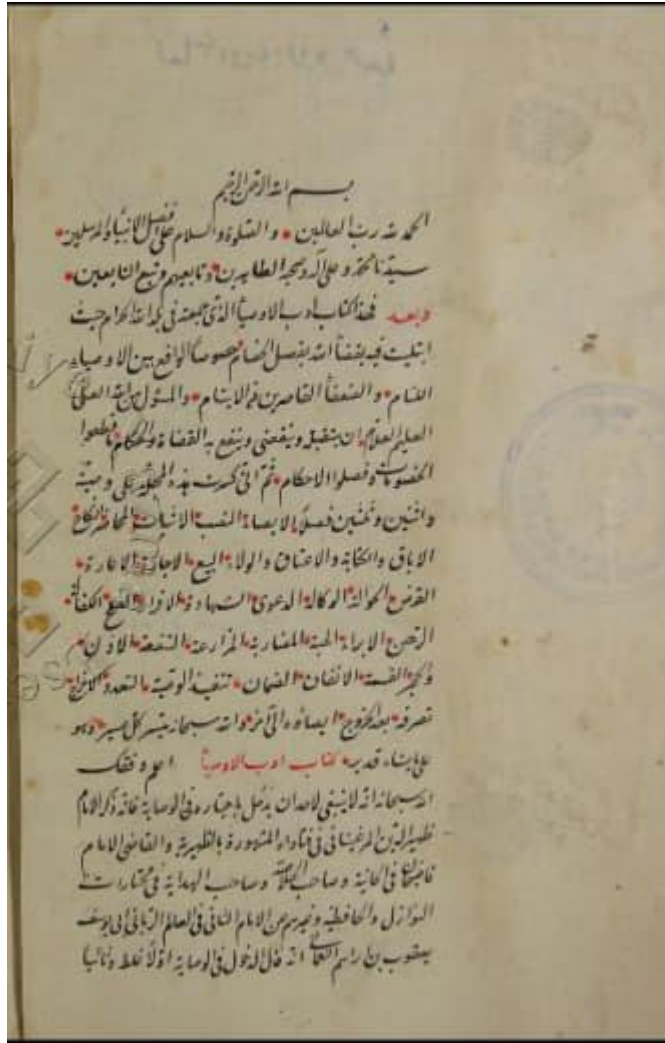 بسم الله الرحمن الرحيم
الحمد لله رب العالمين والصلوة والسلام على افضل الانبياء والمرسلين
سيدنا محمد وعلى آله وصحبه الطاهرين وتابعيهم وتبع التابعين
وبعد فهذا كتاب ادب الاوصياء الذى جمعته فى الحرام حيث
ابتليت فيه بقضاء الله بفصل الخصام خصوصا الواقع بين الاوصياء
اللئام والضعفاء القاصرين من الايتام والمسئول من الله العلى
العليم العلام ان يتقبله وينفعنى وينفع به القضاة والحكام ما قطعوا
الخصومات وفصلوا الاحكام ثم انى كسرت هذه المجلة على وصية
واثنين وثلثين فصلا الايصاء النسب الاثبات المحاضر النكاح
الاباق والكتابة والاعتاق والولاء البيع الاجارة الاعارة
القرض الحوالة الوكالة الدعوى الشهادة الاقرار الصلح الكفالة
الرهن الابراء الهبة المضاربة المزارعة الشفعة الاذن
والحجر القسمة الانفاق الضمان تنفيذ الوصية التعدد الاخراج
تصرفه بعد الخروج ايصاؤه الى آخر والله سبحانه ميسر كل عسير وهو
على ما يشاء قدير كتاب ادب الاوصياء اعلم وفقك
الله سبحانه انه لا ينبغى لاحد ان يدخل باختياره فى الوصاية فانه ذكر الامام
ظهير الدين المرغينانى فى فتاواه المشهورة بالظهيرية والقاضى الامام
قاضيخان فى الخانية وصاحب الخلاصة وصاحب الهداية فى مختارات
النوازل والحافظية وغيرهم عن الامام الثانى فى العالم الربانى ابى يوسف
يعقوب بن ابراهيم انه قال الدخول فى الوصاية اولا غلط وثانيا